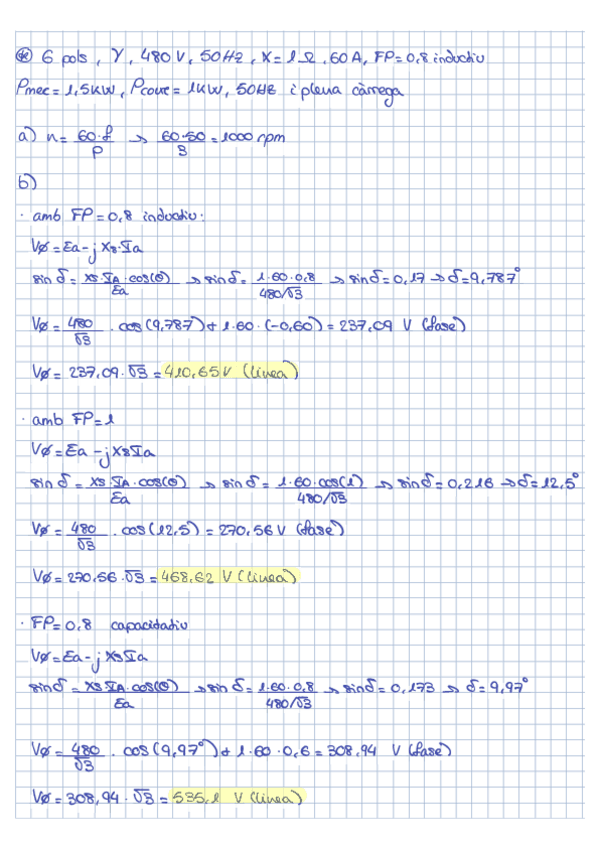 * 6 pols, Y, 480 V, 50Hz, X=1Ω, 60A, FP=0,8 inductiu
Pmec=1,5KW, Pcoure=1KW, 50HZ i plena càrrega
a) n= 60·f/p → 60·50/3 = 1000 rpm
b)
· amb FP=0,8 inductiu:
Vø=Ea-j Xs·Ia
sin δ = Xs·IA·cos(θ)/Ea → sin δ = 1·60·0,8/480/√3 → sin δ=0,17 → δ=9,787°
Vø= 480/√3 · cos(9,787)+1·60·(-0,60) = 237,09 V (fase)
Vø= 237,09·√3 = 410,65V (línea)
· amb FP=1
Vø=Ea-jXsIa
sin δ = Xs·IA·cos(θ)/Ea → sin δ = 1·60·cos(1)/480/√3 → sin δ=0,216 → δ=12,5°
Vø= 480/√3 · cos(12,5) = 270,56 V (fase)
Vø= 270,56·√3 = 468,62 V (línea)
· FP=0,8 capacitatiu
Vø=Ea-j XsIa
sin δ = Xs·IA·cos(θ)/Ea → sin δ = 1·60·0,8/480/√3 → sin δ=0,173 → δ=9,97°
Vø= 480/√3 · cos(9,97°)+1·60·0,6 = 308,94 V (fase)
Vø= 308,94·√3 = 535,1 V (línea)